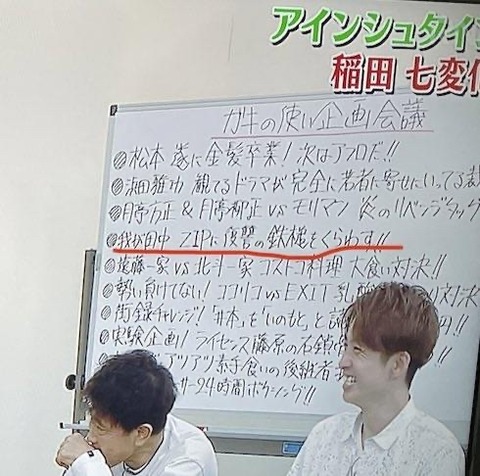 アインシュタイン
稲田 七変化
ガキの使い企画会議
松本 遂に金髪卒業!次はアフロだ!!
浜田雅功 観てるドラマが完全に若者に寄せにいってる
月亭方正&月亭柳正 vs モリマン 炎のリベンジ
我が田中 ZIPに復讐の鉄槌をくらわす!!
遠藤一家 vs 北斗一家 コストコ料理 大食い対決!!
勢い負けてない!ココリコ vs EXIT 乳酸 対決!!
街録チャレンジ!「井本」を「いのもと」と !!
実験企画!ライセンス藤原の右鎖
アツアツ素手食いの後継者
24時間ボクシング!!